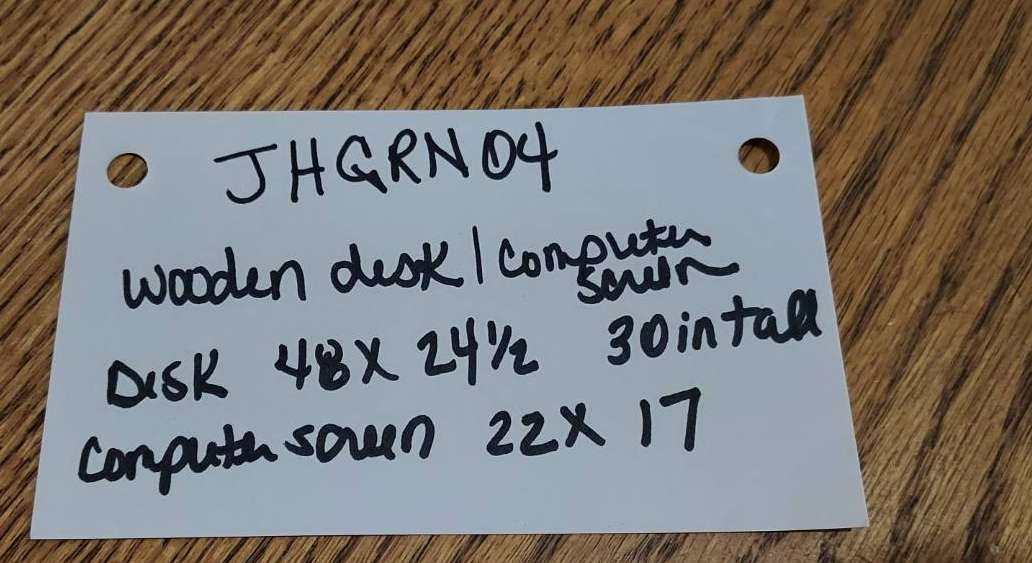 JHGRN04
wooden desk / computer
screen
Desk 48 X 24 1/2 30 in tall
computer screen 22 X 17